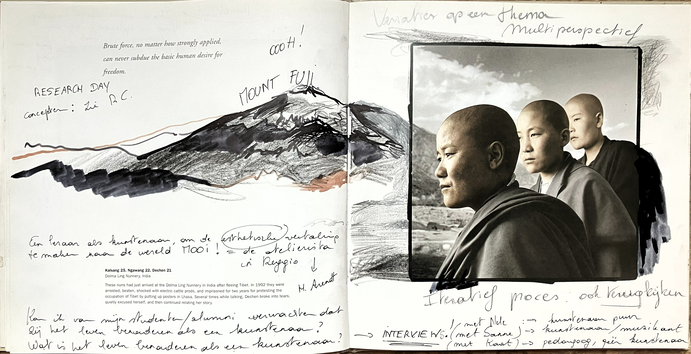 Brute force, no matter how strongly applied,
can never subdue the basic human desire for
freedom.
OOOH!
MOUNT FUJI
RESEARCH DAY
concepten: zie R.C.
Een leraar als kunstenaar, om de esthetische vertaling
te maken naar de wereld MOOI! = de atelierista
in Reggio
↓
H. Arendt
Kalsang 25, Ngawang 22, Dechen 21
Dolma Ling Nunnery, India
These nuns had just arrived at the Dolma Ling Nunnery in India after fleeing Tibet. In 1992 they were
arrested, beaten, shocked with electric cattle prods, and imprisoned for two years for protesting the
occupation of Tibet by putting up posters in Lhasa. Several times while talking, Dechen broke into tears,
quietly excused herself, and then continued relating her story.
Kan ik van mijn studenten/alumni verwachten dat
zij het leven benaderen als een kunstenaar?
Wat is het leven benaderen als een kunstenaar?
Variaties op een thema
Multiperspectief
Iteratief proces. ook terugkijken
→ INTERVIEWS: (met Nele: → kunstenaar puur
(met Sanne) → kunstenaar/muzikant
(met Kaat) → pedagoog, géén kunstenaar